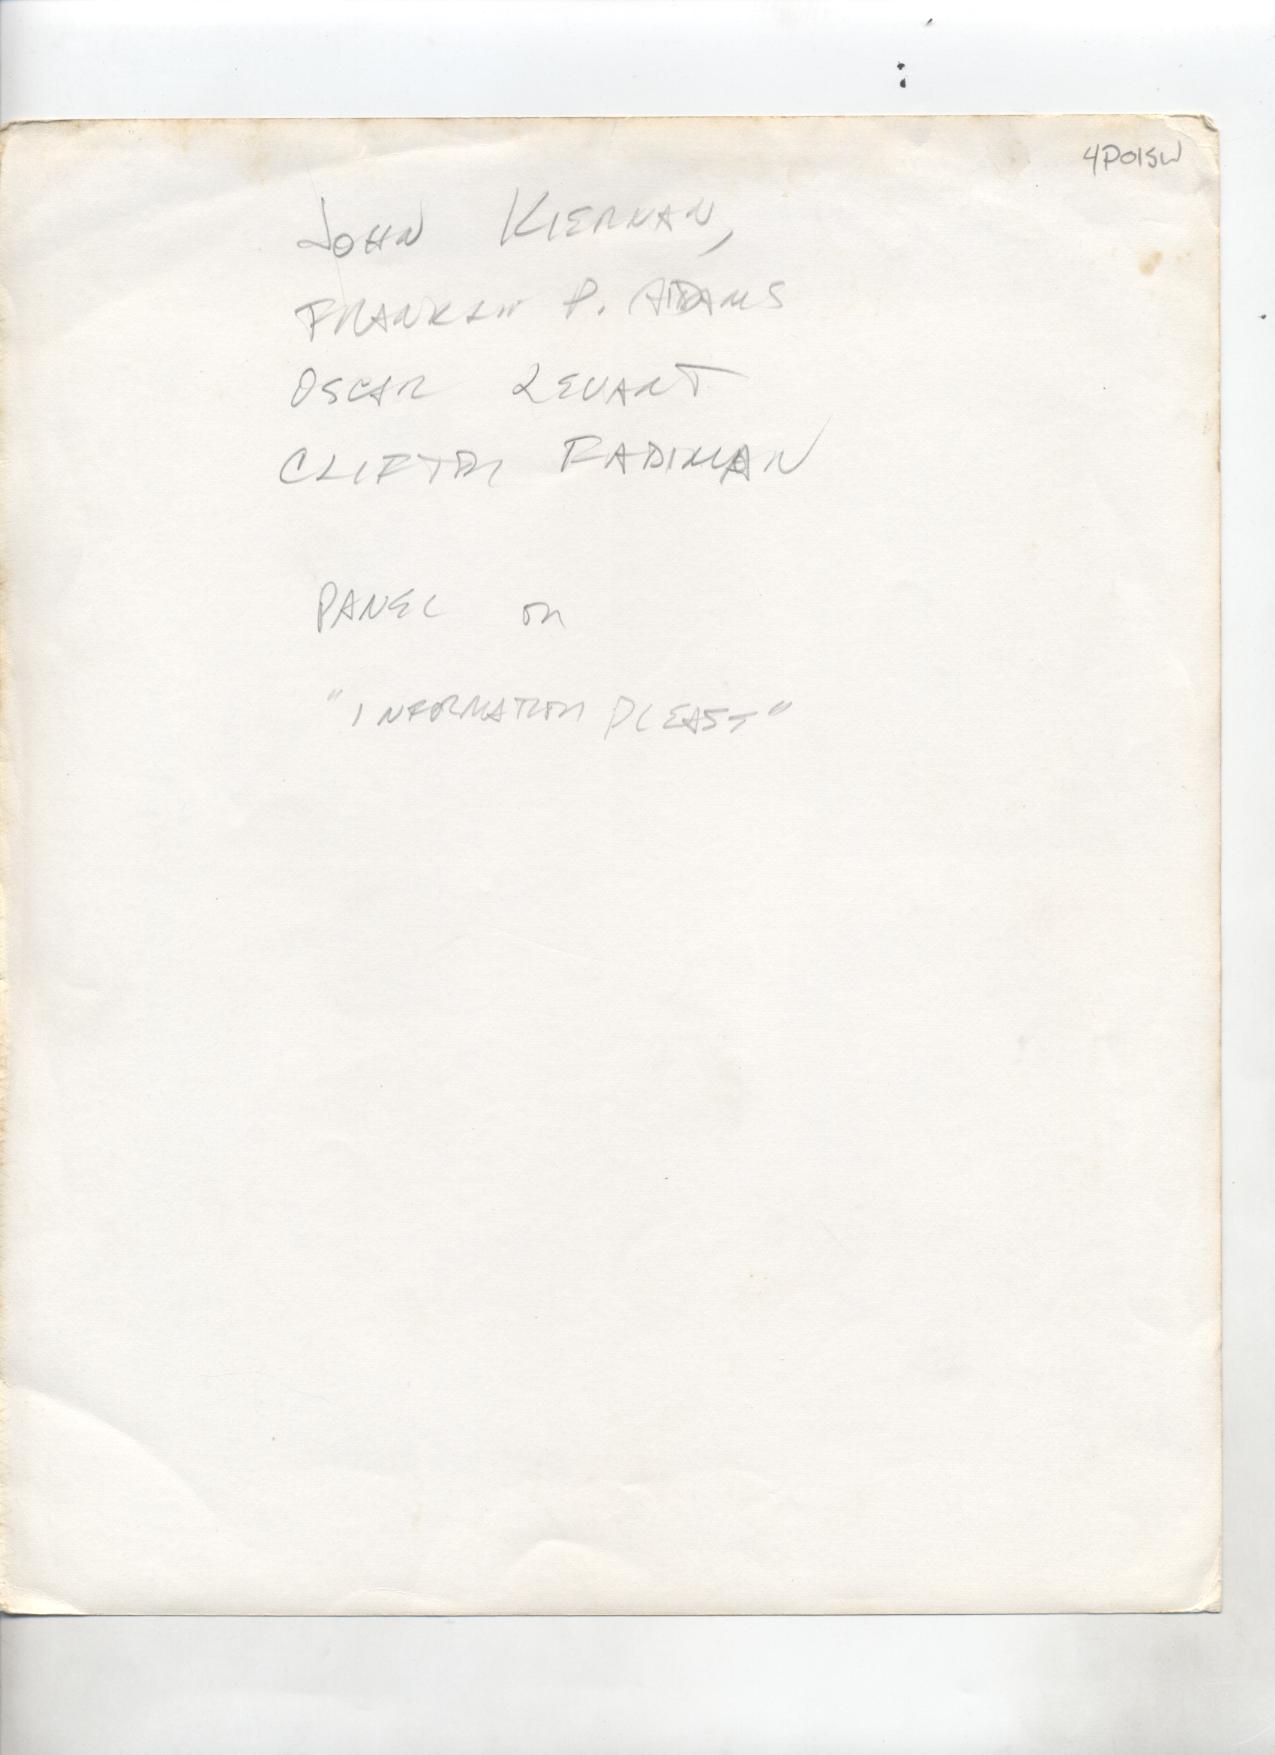 4P01SW
JOHN KIERNAN,
FRANKLIN P. ADAMS
OSCAR LEVANT
CLIFTON FADIMAN
PANEL on
"INFORMATION PLEASE"